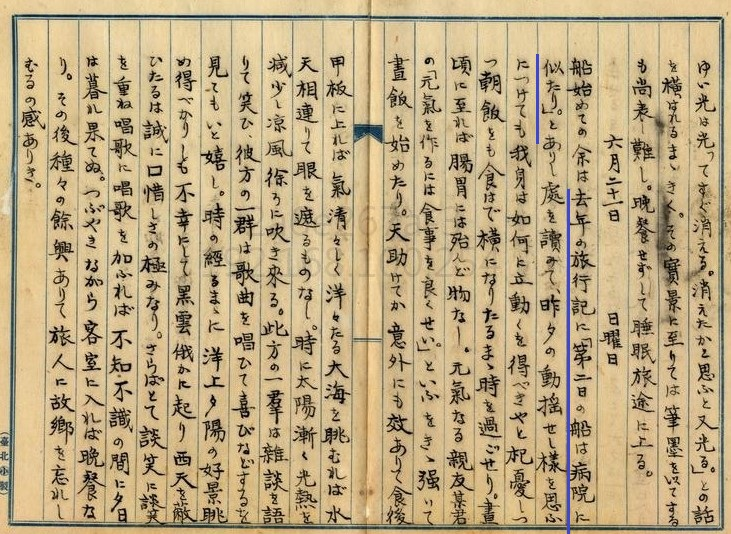 ゆい光は光ってすぐ消える。消えたかと思ふと又光る。」との話
を横はれるまゝきく。その實景に至りては筆墨を以てする
も尚表し難し。晩餐せずして睡眠旅途に上る。
六月二十一日　日曜日
船始めての余は去年の旅行記に「第二日の船は病院に
似たり。」とありし處を讀みて、昨夕の動揺せし様を思ふ
につけても我身は如何に立動くを得べきやと杞憂しつ
つ朝飯をも食はで横になりたるまゝ時を過ごせり。晝
頃に至れば腸胃には殆んど物なし。元氣なる親友某君
の「元氣を作るには食事を良くせい」といふをきゝ強いて
晝飯を始めたり。天助けてか意外にも效ありて食後
甲板に上れば氣清々しく洋々たる大海を眺むれば水
天相連りて眼を遮るものなし。時に太陽漸く光熱を
減少し凉風徐ろに吹き來る。此方の一羣は雜談を語
りて笑ひ彼方の一群は歌曲を唱ひて喜びなどするを
見てもいと嬉し。時の經るまゝに洋上夕陽の好景眺
め得べかりしも不幸にして黑雲俄かに起り西天を蔽
ひたるは誠に口惜しさの極みなり。さらばとて談笑に談笑
を重ね唱歌に唱歌を加ふれば不知不識の間に夕日
は暮れ果てぬ。つぶやきながら客室に入れば晩餐な
り。その後種々の餘興ありて旅人に故鄉を忘れし
むるの感ありき。
(臺北小製)